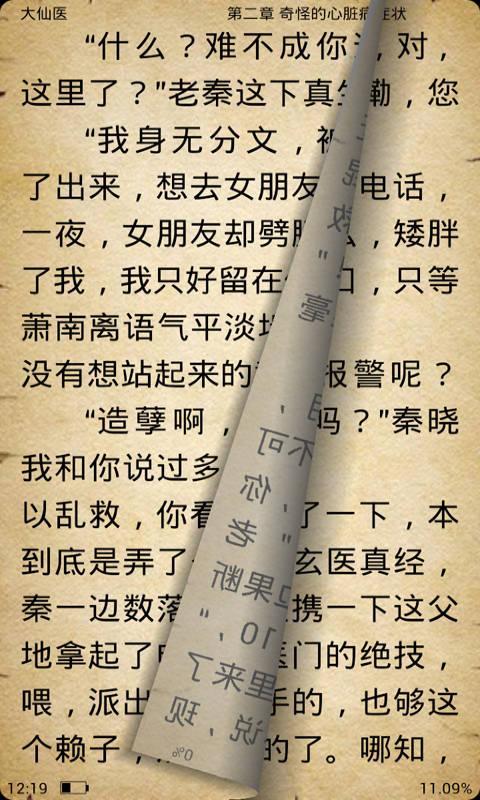 大仙医 第二章 奇怪的心脏病症状
“什么？难不成你 对，
这里了？”老秦这下真 勒，您
“我身无分文，被
了出来，想去女朋友 电话，
一夜，女朋友却劈 ，矮胖
了我，我只好留在 口，只等
萧南离语气平淡
没有想站起来的 报警呢？
“造孽啊， 吗？”秦晓
我和你说过多 不可
以乱救，你看 了一下，本
到底是弄了 玄医真经，
秦一边数落 携一下这父
地拿起了 医门的绝技，
喂，派出 手的，也够这
个赖子， 的了。哪知，
救
"
毫
，
不可
，你
"老
果断
10，"
里来了
说，现
0%
12:19 11.09%